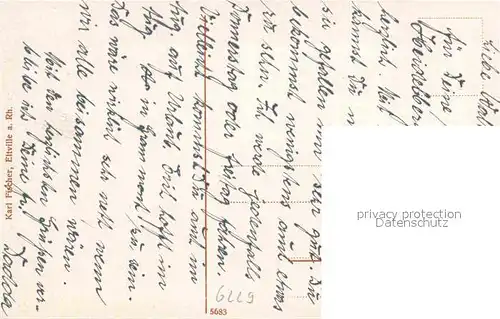 Liebe
für Deine
Heidelberg
herzlich.
kannst Du
sie gefallen mir sehr gut. Du
bekommst wenigstens auch etwas
zu sehn. Ich werde jedenfalls
Donnerstag oder Freitag fahren.
Vielleicht kommst Du auch im
Aug. auf Urlaub. Emil hofft im
Aug. in zu sein.
Das wäre wirklich sehr nett wenn
wir alle beisammen wären.
Mit den herzlichsten Grüßen ver-
bleibe ich Deine
Karl Fischer, Eltville a. Rh.
5683
6229
privacy protection
Datenschutz